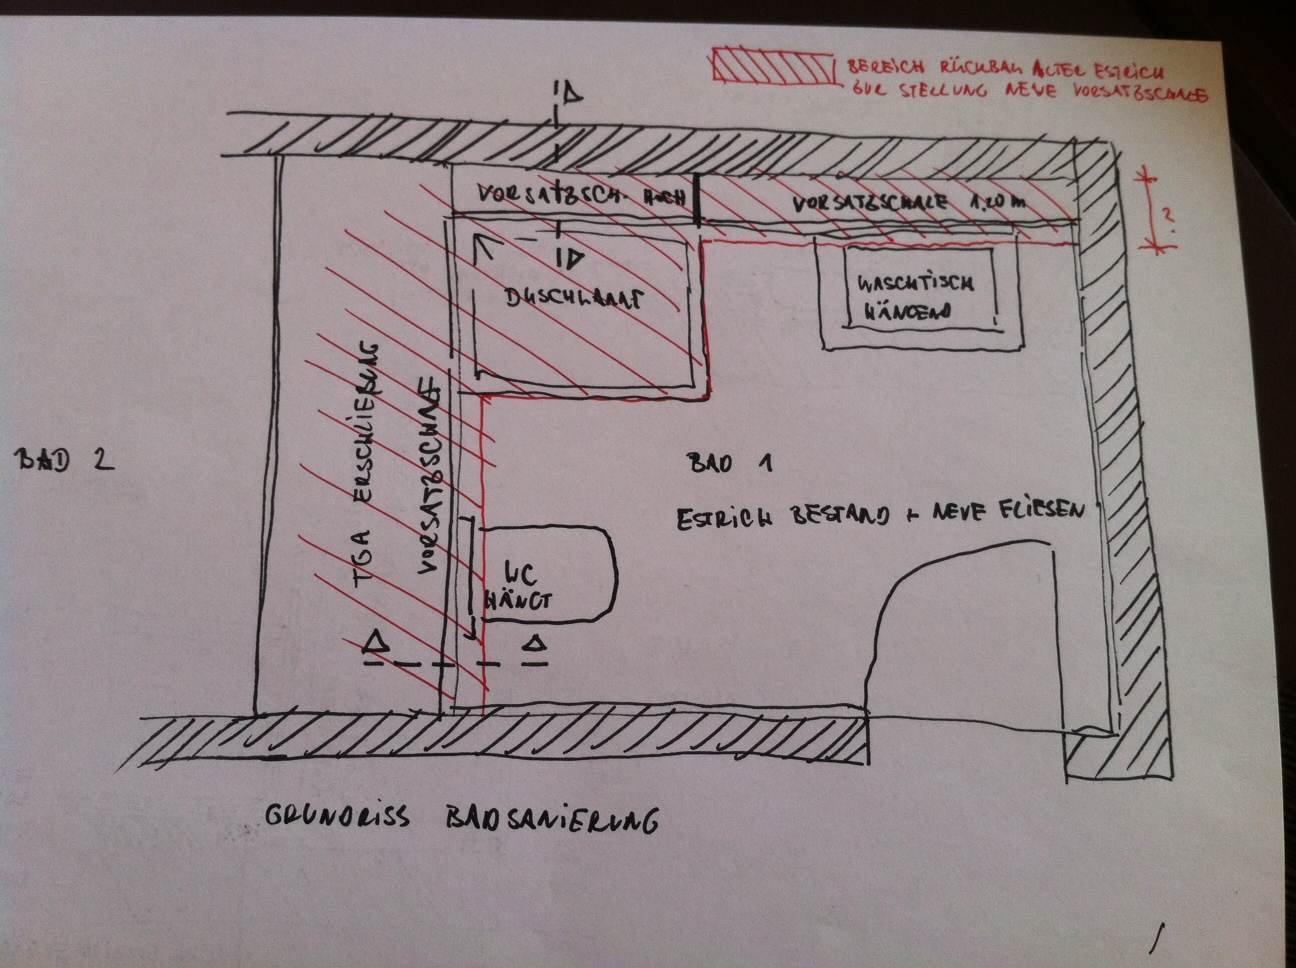 BEREICH RÜCKBAU ALTER ESTRICH
ZUR STELLUNG NEUE VORSATZSCHALE
VORSATZSCH. HOCH
VORSATZSCHALE 1,20 m
?
DUSCHWANNE
WASCHTISCH
HÄNGEND
TGA ERSCHLIEßUNG
VORSATZSCHALE
BAD 2
BAD 1
ESTRICH BESTAND + NEUE FLIESEN
WC
HÄNGT
GRUNDRISS BADSANIERUNG